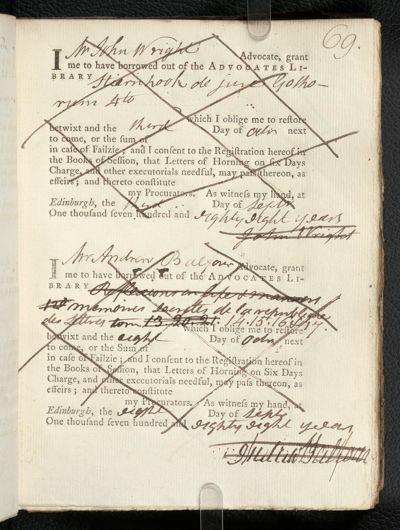 69.
I Mr John Wright Advocate, grant
me to have borrowed out of the ADVOCATES LI-
BRARY Stiernhook de jure Gotho-
rum 4to
which I oblige me to restore
betwixt and the third Day of octr next
to come, or the sum of
in case of Failzie; and I consent to the Registration hereof in
the Books of Session, that Letters of Horning on six Days
Charge, and other executorials needful, may pass thereon, as
effeirs; and thereto constitute
my Procurators. As witness my hand, at
Edinburgh, the Day of Septr
One thousand seven hundred and eighty eight years
John Wright
I Mr Andrew Balfour Advocate, grant
me to have borrowed out of the ADVOCATES LI-
BRARY
memoires secretes de la republique
des lettres tom 14. 15. 16. 17
which I oblige me to restore
betwixt and the eight Day of octr next
to come, or the Sum of
in case of Failzie; and I consent to the Registration hereof in
the Books of Session, that Letters of Horning on Six Days
Charge, and other executorials needful, may pass thereon, as
effeirs; and thereto constitute
my Procurators. As witness my hand, at
Edinburgh, the eight Day of Septr
One thousand seven hundred and eighty eight years